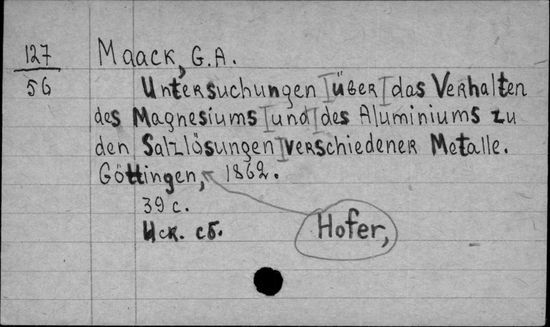 127
56
Maack, G.A.
Untersuchungen über das Verhalten
des Magnesiums und des Aluminiums zu
den Salzlösungen verschiedener Metalle.
Göttingen, 1862.
Hofer,
39 с.
Иск. сб.